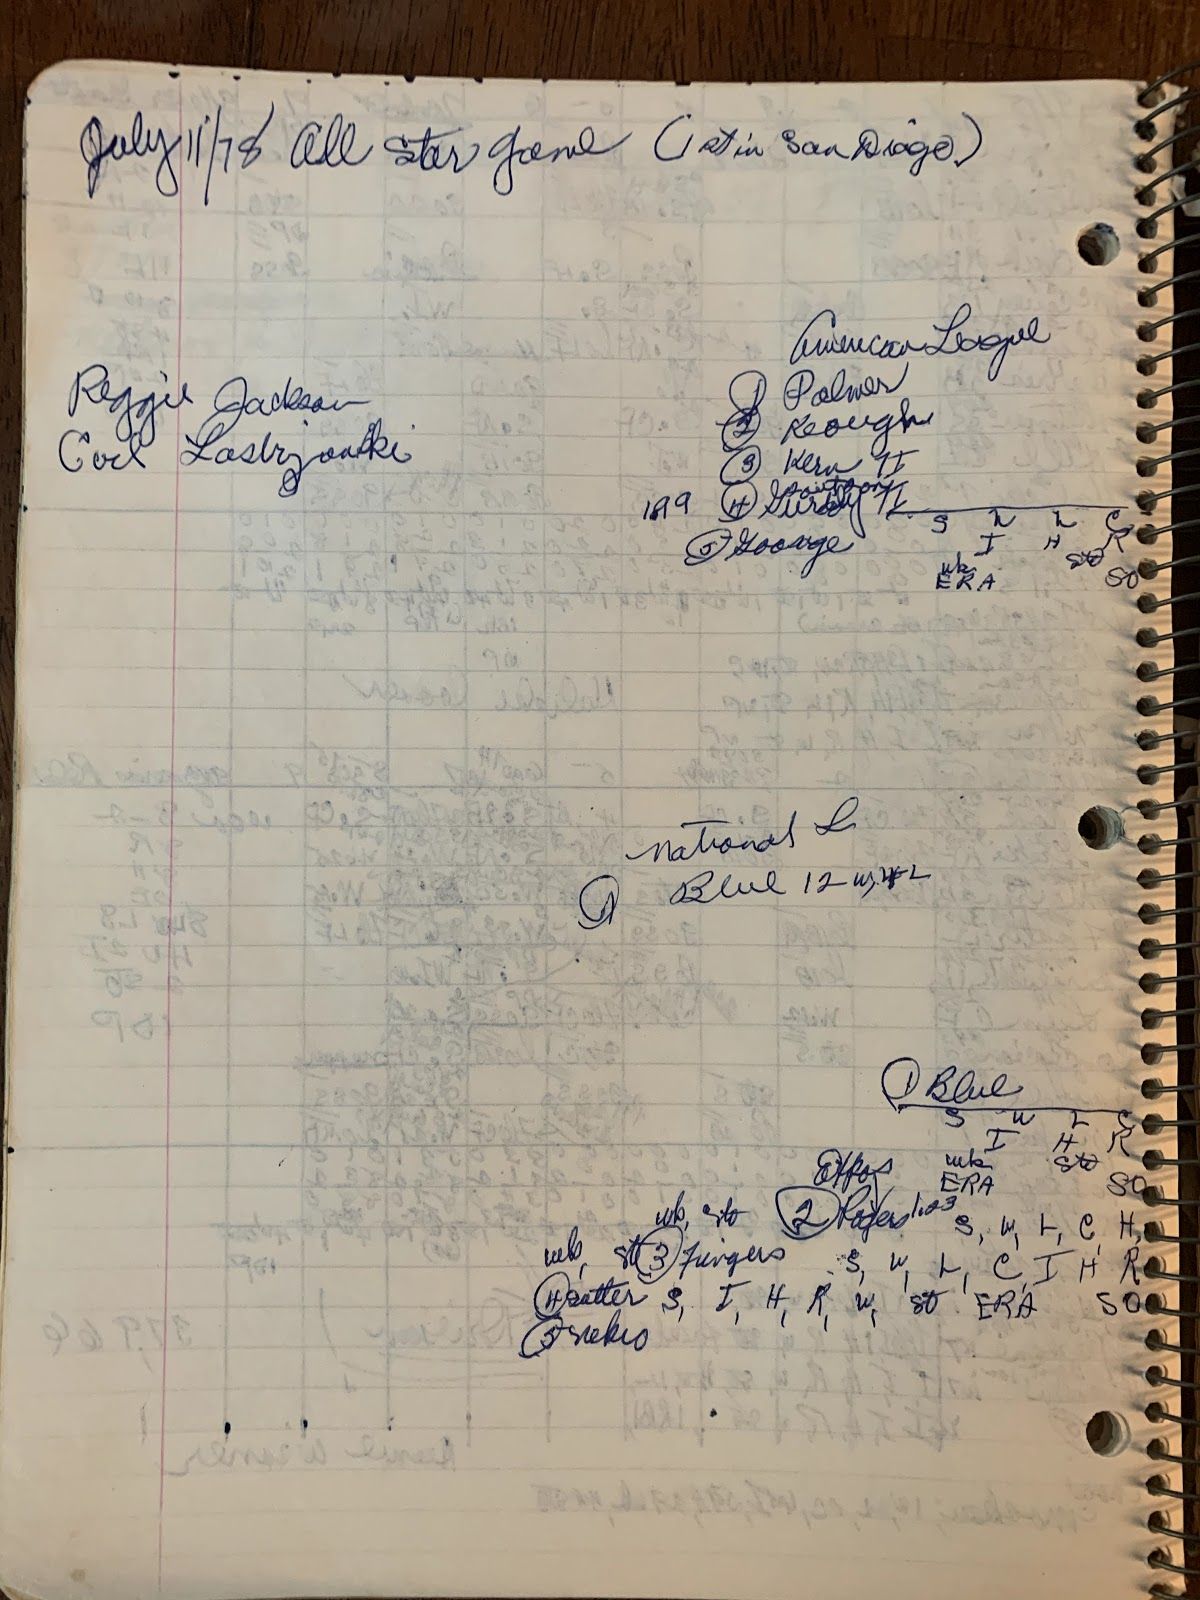 July 11/78 All Star Game (1st in San Diego)
American League
Reggie Jackson
Carl Yastrzjomski
① Palmer
② Keough
③ Kern II
1979 ④ Guidry II
⑤ Goosage
S W L C
I H R
wk Sto
ERA SO
National L
① Blue 12 W, 4 L
① Blue
S W L C
I H R
wk Sto
ERA SO
wk, sto ② Rogers 1.23 S, W, L, C, H,
wk, St ③ Fingers S, W, L, C, I H R
④ Sutter S, I, H, R, W, SO ERA SO
⑤ Niekro